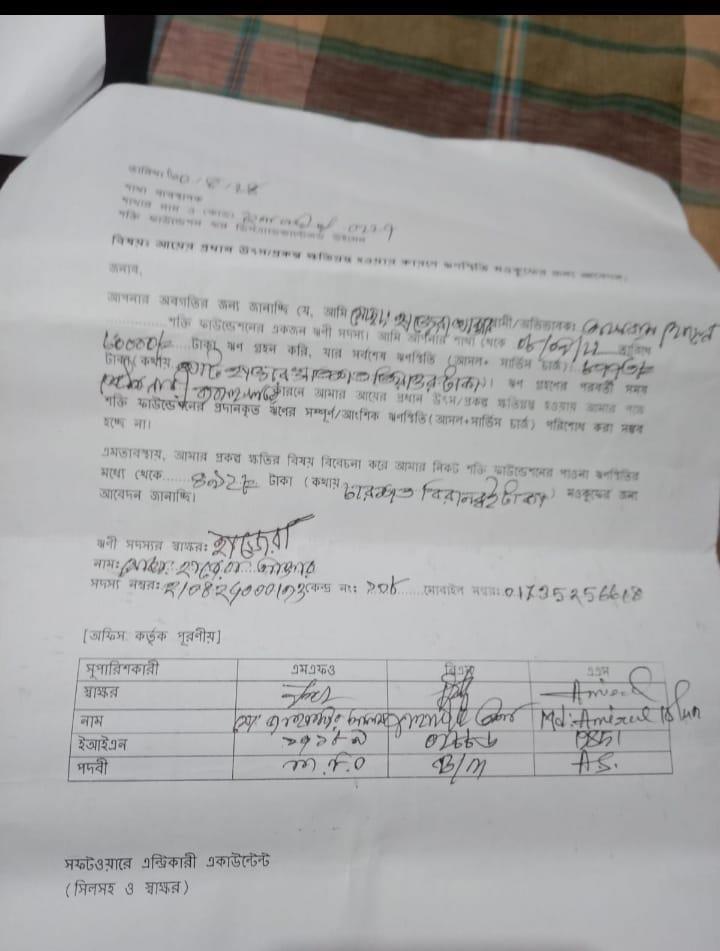 তারিখঃ
শাখা ব্যবস্থাপক
শাখার নাম ও কোডঃ
শক্তি ফাউন্ডেশন ফর ডিসএডভান্টেজড উইমেন
বিষয়ঃ আয়ের প্রধান উৎস/প্রকল্প ক্ষতিগ্রস্ত হওয়ার কারণে ঋণস্থিতি মওকুফের জন্য আবেদন।
জনাব,
আপনার অবগতির জন্য জানাচ্ছি যে, আমি মোছাঃ হাজেরা আক্তার স্বামী/অভিভাবকঃ
শক্তি ফাউন্ডেশনের একজন ঋণী সদস্য। আমি আপনার শাখা থেকে ০৮/০২/২২ তারিখে
৮০০০০/= টাকা ঋণ গ্রহন করি, যার সর্বশেষ ঋণস্থিতি (আসল+ সার্ভিস চার্জ)
টাকা (কথায় টাকা)। ঋণ গ্রহণের পরবর্তী সময়
কারনে আমার আয়ের প্রধান উৎস/প্রকল্প ক্ষতিগ্রস্ত হওয়ায় আমার পক্ষে
শক্তি ফাউন্ডেশনের প্রদানকৃত ঋণের সম্পূর্ণ/আংশিক ঋণস্থিতি (আসল+সার্ভিস চার্জ) পরিশোধ করা সম্ভব
হচ্ছে না।
এমতাবস্থায়, আমার প্রকল্প ক্ষতির বিষয় বিবেচনা করে আমার নিকট শক্তি ফাউন্ডেশনের পাওনা ঋণস্থিতির
মধ্যে থেকে......৪৯২/= টাকা (কথায় চারশত বিরানব্বই টাকা) মওকুফের জন্য
আবেদন জানাচ্ছি।
ঋণী সদস্যর স্বাক্ষরঃ হাজেরা
নামঃ মোছাঃ হাজেরা আক্তার
সদস্য নম্বরঃ কেন্দ্র নংঃ ১০৮ মোবাইল নম্বরঃ 01735256618
[অফিস কর্তৃক পূরণীয়]
সুপারিশকারী এমএফও বিএম এএস
স্বাক্ষর Amirul
নাম মোঃ জাহাঙ্গীর আলম Md: Amirul Islam
ইআইএন
পদবী M.F.O B/M A.S.
সফটওয়ারে এন্ট্রিকারী একাউন্টেন্ট
(সিলসহ ও স্বাক্ষর)